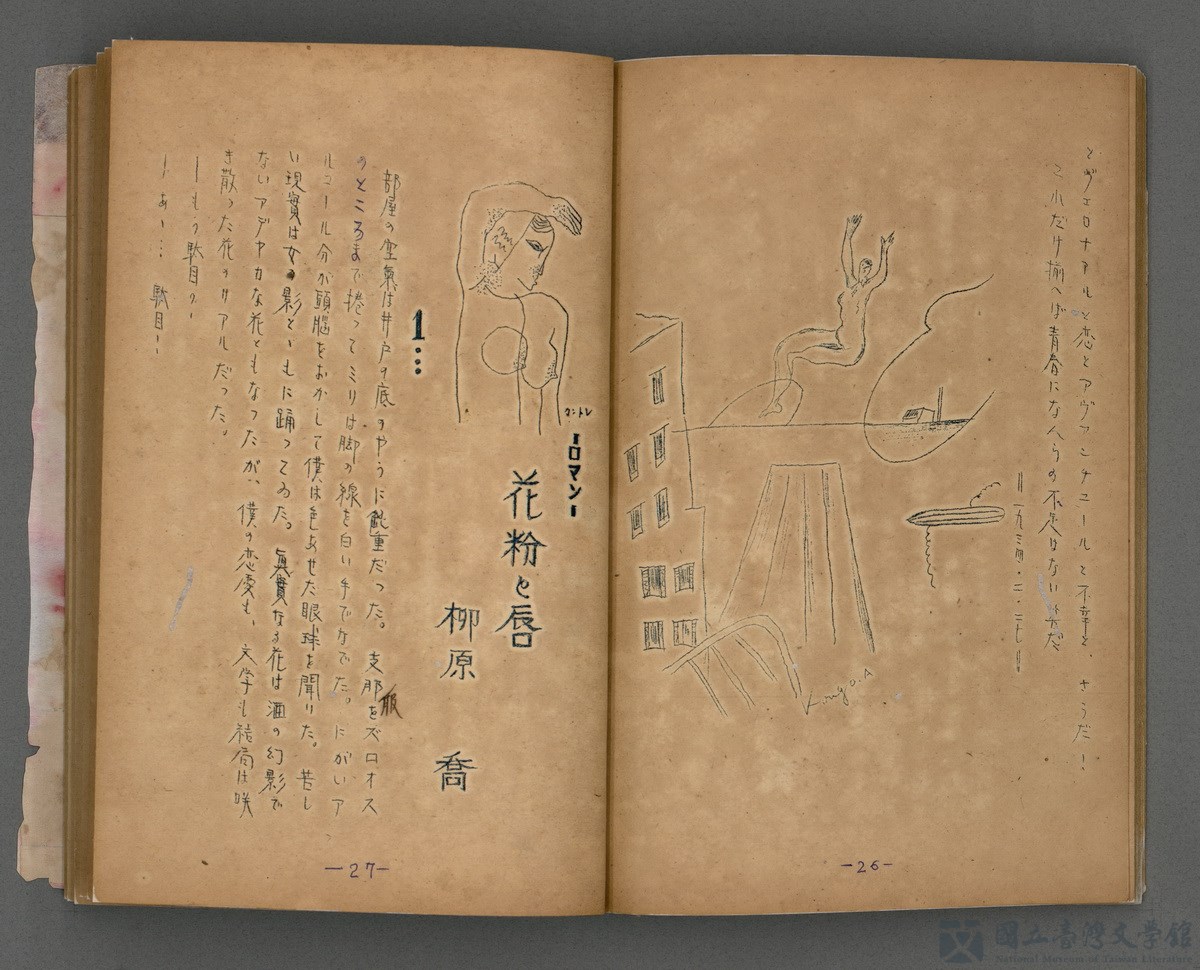 とヴェロナアルと恋とアヴァンチユールと不幸と、さうだ！
これだけ揃へば青春になんらの不足はない筈だ
＝一九三四・二・二七＝
Longo.A
—26—
－ロマン－
花粉と唇
柳原 喬
1…
部屋の空氣は井戸の底のやうに鈍重だった。支那服をズロオス
のところまで捲ってミリは脚の線を白い手でなでた。にがいア
ルコール分が頭腦をおかして僕は色あせた眼球を開いた。苦し
い現實は女の影ともに踊ってゐた。眞實なる花は酒の幻影で
ないアデヤカな花ともなったが、僕の恋愛も、文学も結局は咲
き散った花のリアルだった。
—もう駄目の—
—あゝ… 駄目—
—27—
國立臺灣文學館
National Museum of Taiwan Literature